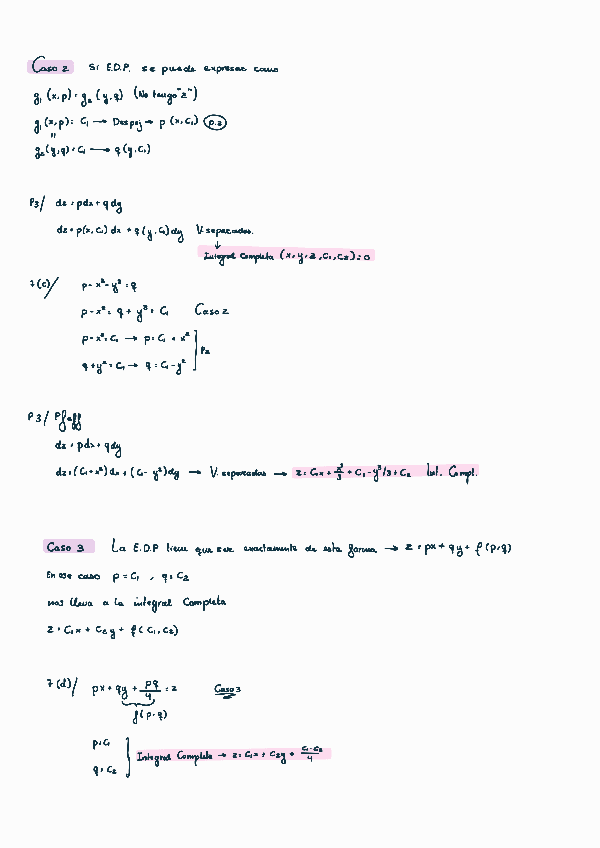 Caso 2 Si E.D.P. se puede expresar como
g₁(x,p) = g₂(y,q) (No tengo "z")
g₁(x,p) = C₁ → Despej → p(x,C₁) P.2
"
g₂(y,q) = C₁ → q(y,C₁)
P3/ dz = pdx + qdy
dz = p(x,C₁)dx + q(y,C₁)dy V.separadas.
↓
Integral Completa (x,y,z,C₁,C₂) = 0
7(c)/ p - x² - y² = q
p - x² = q + y² = C₁ Caso 2
p - x² = C₁ → p = C₁ + x²
P2
q + y² = C₁ → q = C₁ - y²
P3/ Pfaff
dz = pdx + qdy
dz = (C₁ + x²)dx + (C₁ - y²)dy → V.separadas → z = C₁x + x³/3 + C₁ - y³/3 + C₂ Int. Compl.
Caso 3 La E.D.P tiene que ser exactamente de esta forma → z = px + qy + f(p,q)
En ese caso p = C₁ , q = C₂
nos lleva a la integral Completa
z = C₁x + C₂y + f(C₁,C₂)
7(d)/ px + qy + pq/4 = z Caso 3
f(p,q)
p = C₁
Integral Completa → z = C₁x + C₂y + C₁·C₂/4
q = C₂